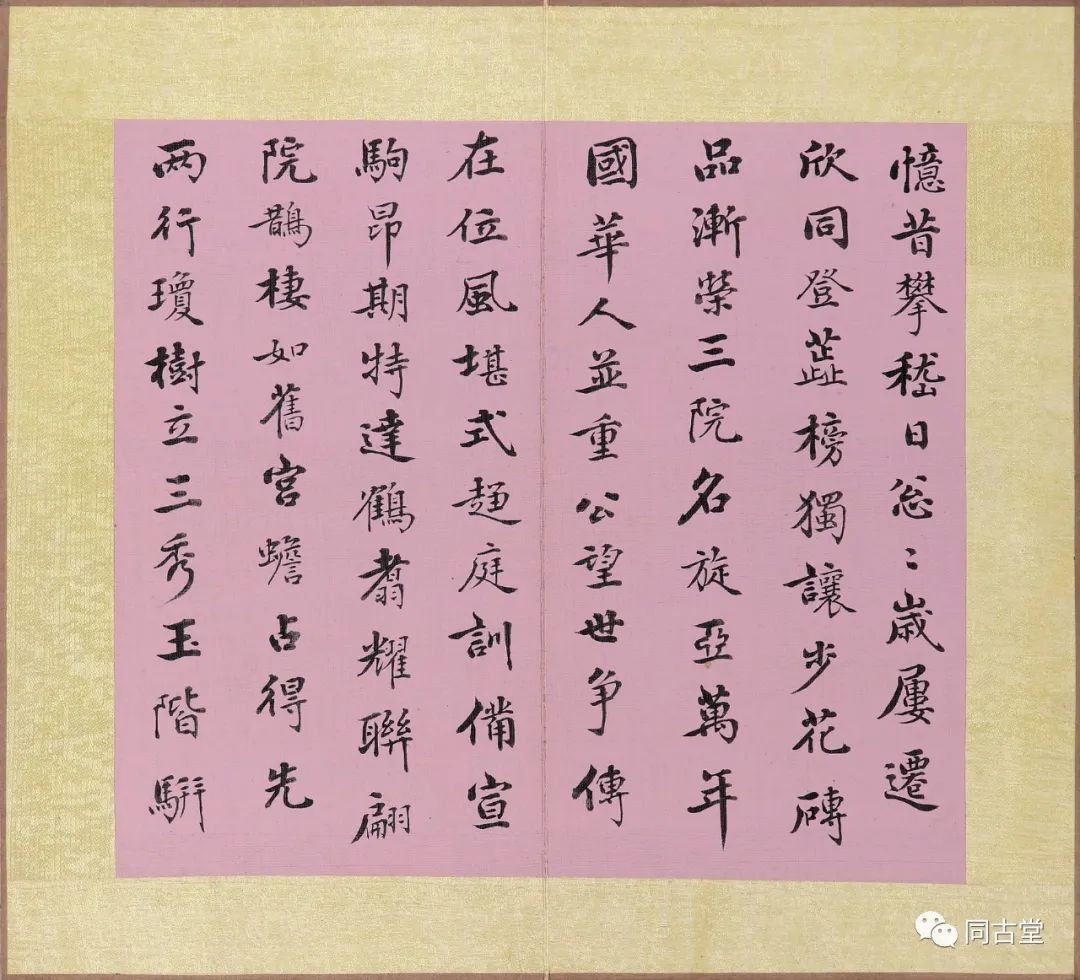 憶昔攀嵇日忩〻歲屢遷
欣同登蘂榜獨讓步花磚
品漸榮三院名旋亞萬年
國華人並重公望世爭傳
在位風堪式趨庭訓備宣
駒昂期特達鶴翥耀聯翩
院鵲棲如舊宮蟾占得先
两行瓊樹立三秀玉階駢
同古堂